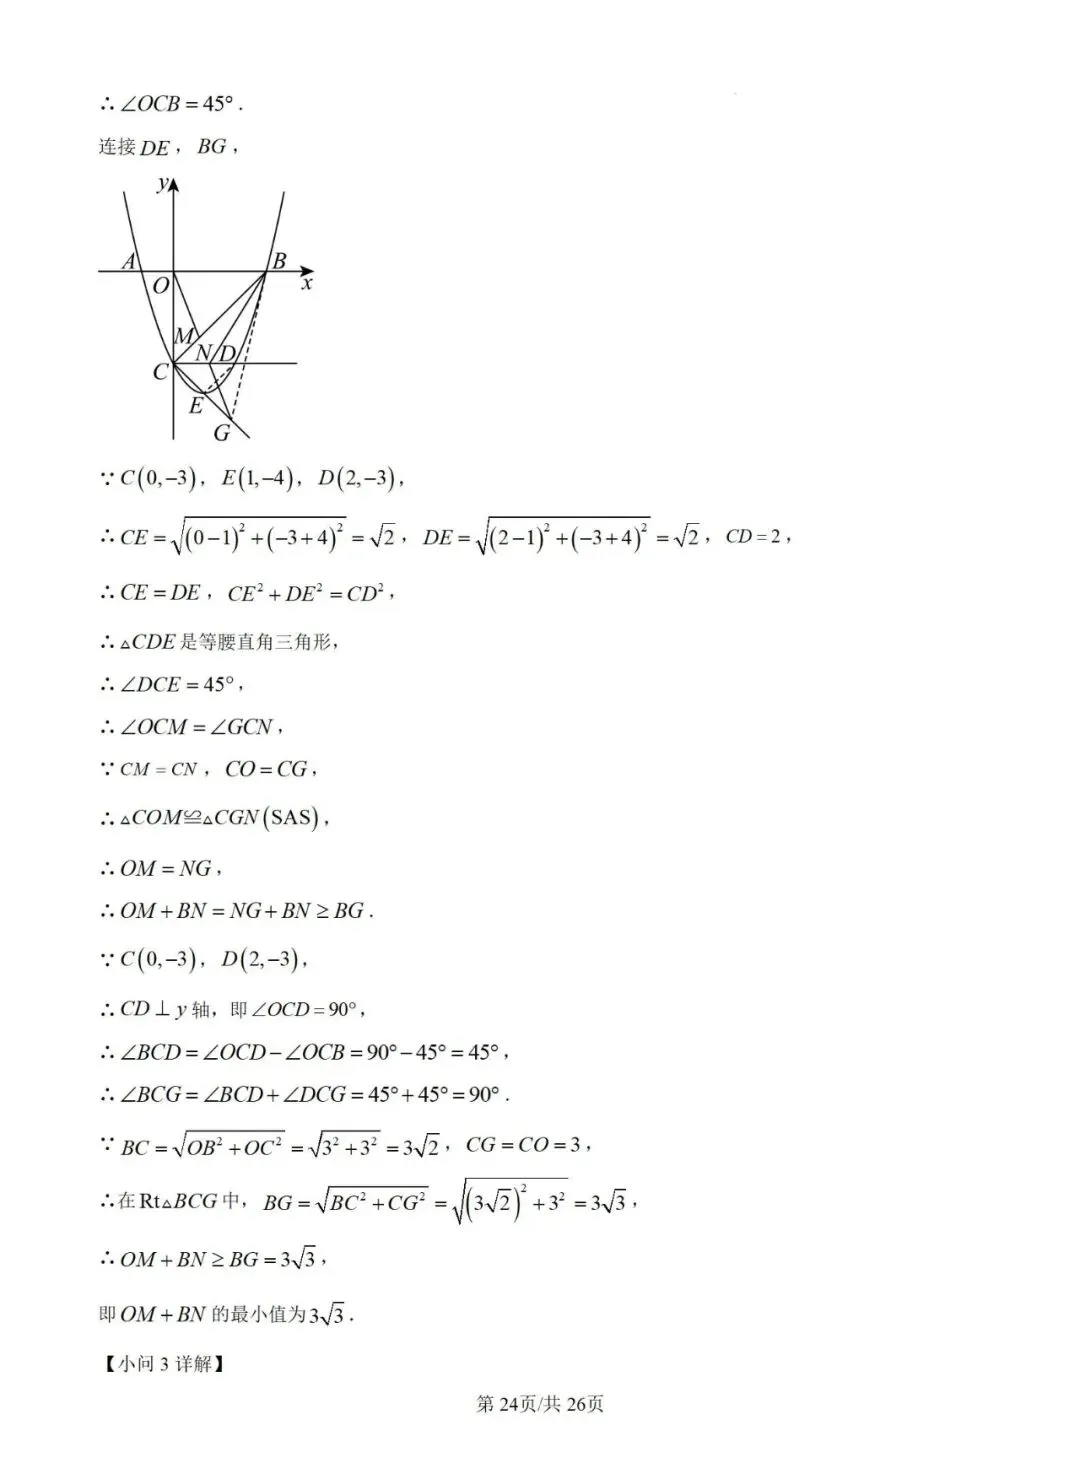 ∴∠OCB=45°.
连接DE，BG，
y
A
B
O
x
M
N
D
C
E
G
∵C(0,−3)，E(1,−4)，D(2,−3)，
∴CE=√((0−1)²+(−3+4)²)=√2，DE=√((2−1)²+(−3+4)²)=√2，CD=2，
∴CE=DE，CE²+DE²=CD²，
∴△CDE是等腰直角三角形，
∴∠DCE=45°，
∴∠OCM=∠GCN，
∵CM=CN，CO=CG，
∴△COM≌△CGN(SAS)，
∴OM=NG，
∴OM+BN=NG+BN≥BG.
∵C(0,−3)，D(2,−3)，
∴CD⊥y轴，即∠OCD=90°，
∴∠BCD=∠OCD−∠OCB=90°−45°=45°，
∴∠BCG=∠BCD+∠DCG=45°+45°=90°.
∵BC=√(OB²+OC²)=√(3²+3²)=3√2，CG=CO=3，
∴在Rt△BCG中，BG=√(BC²+CG²)=√((3√2)²+3²)=3√3，
∴OM+BN≥BG=3√3，
即OM+BN的最小值为3√3.
【小问3详解】
第24页/共26页